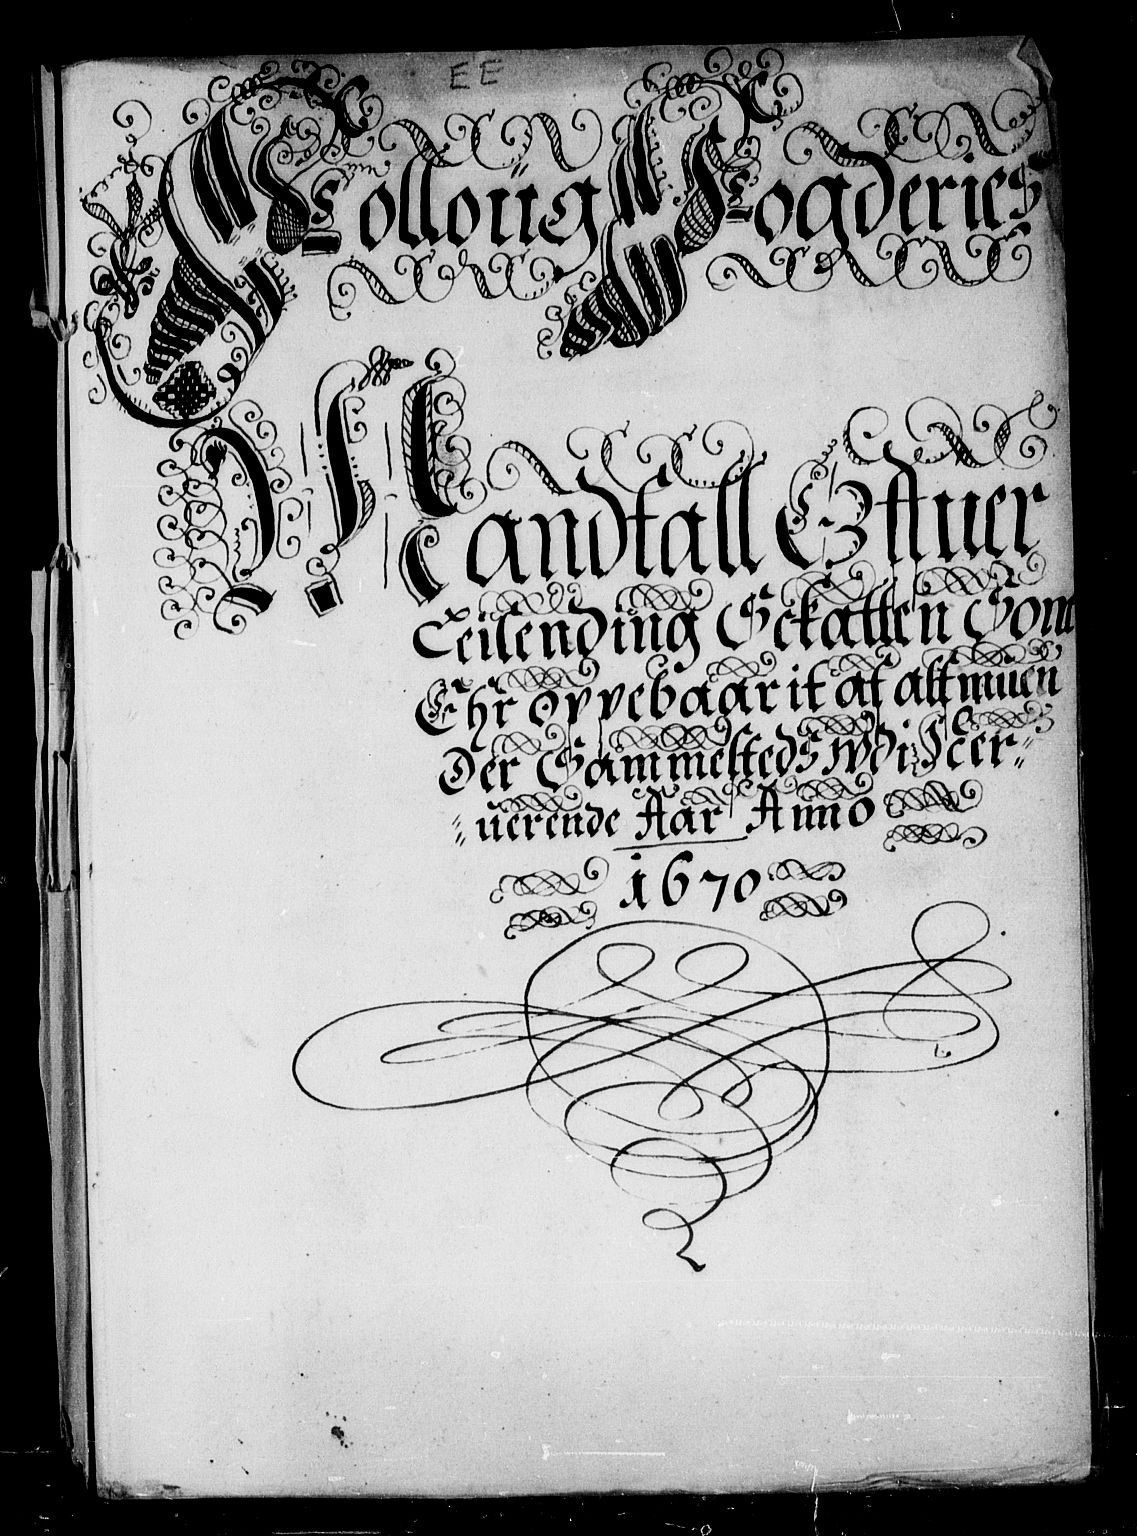 EE
Folloug Fogderies
Mandtall Efftuer
Leilending Sckatten Som
Ehr oppebaarit af allmuen
Der Sammesteds udi
uerende Aar Anno
1670